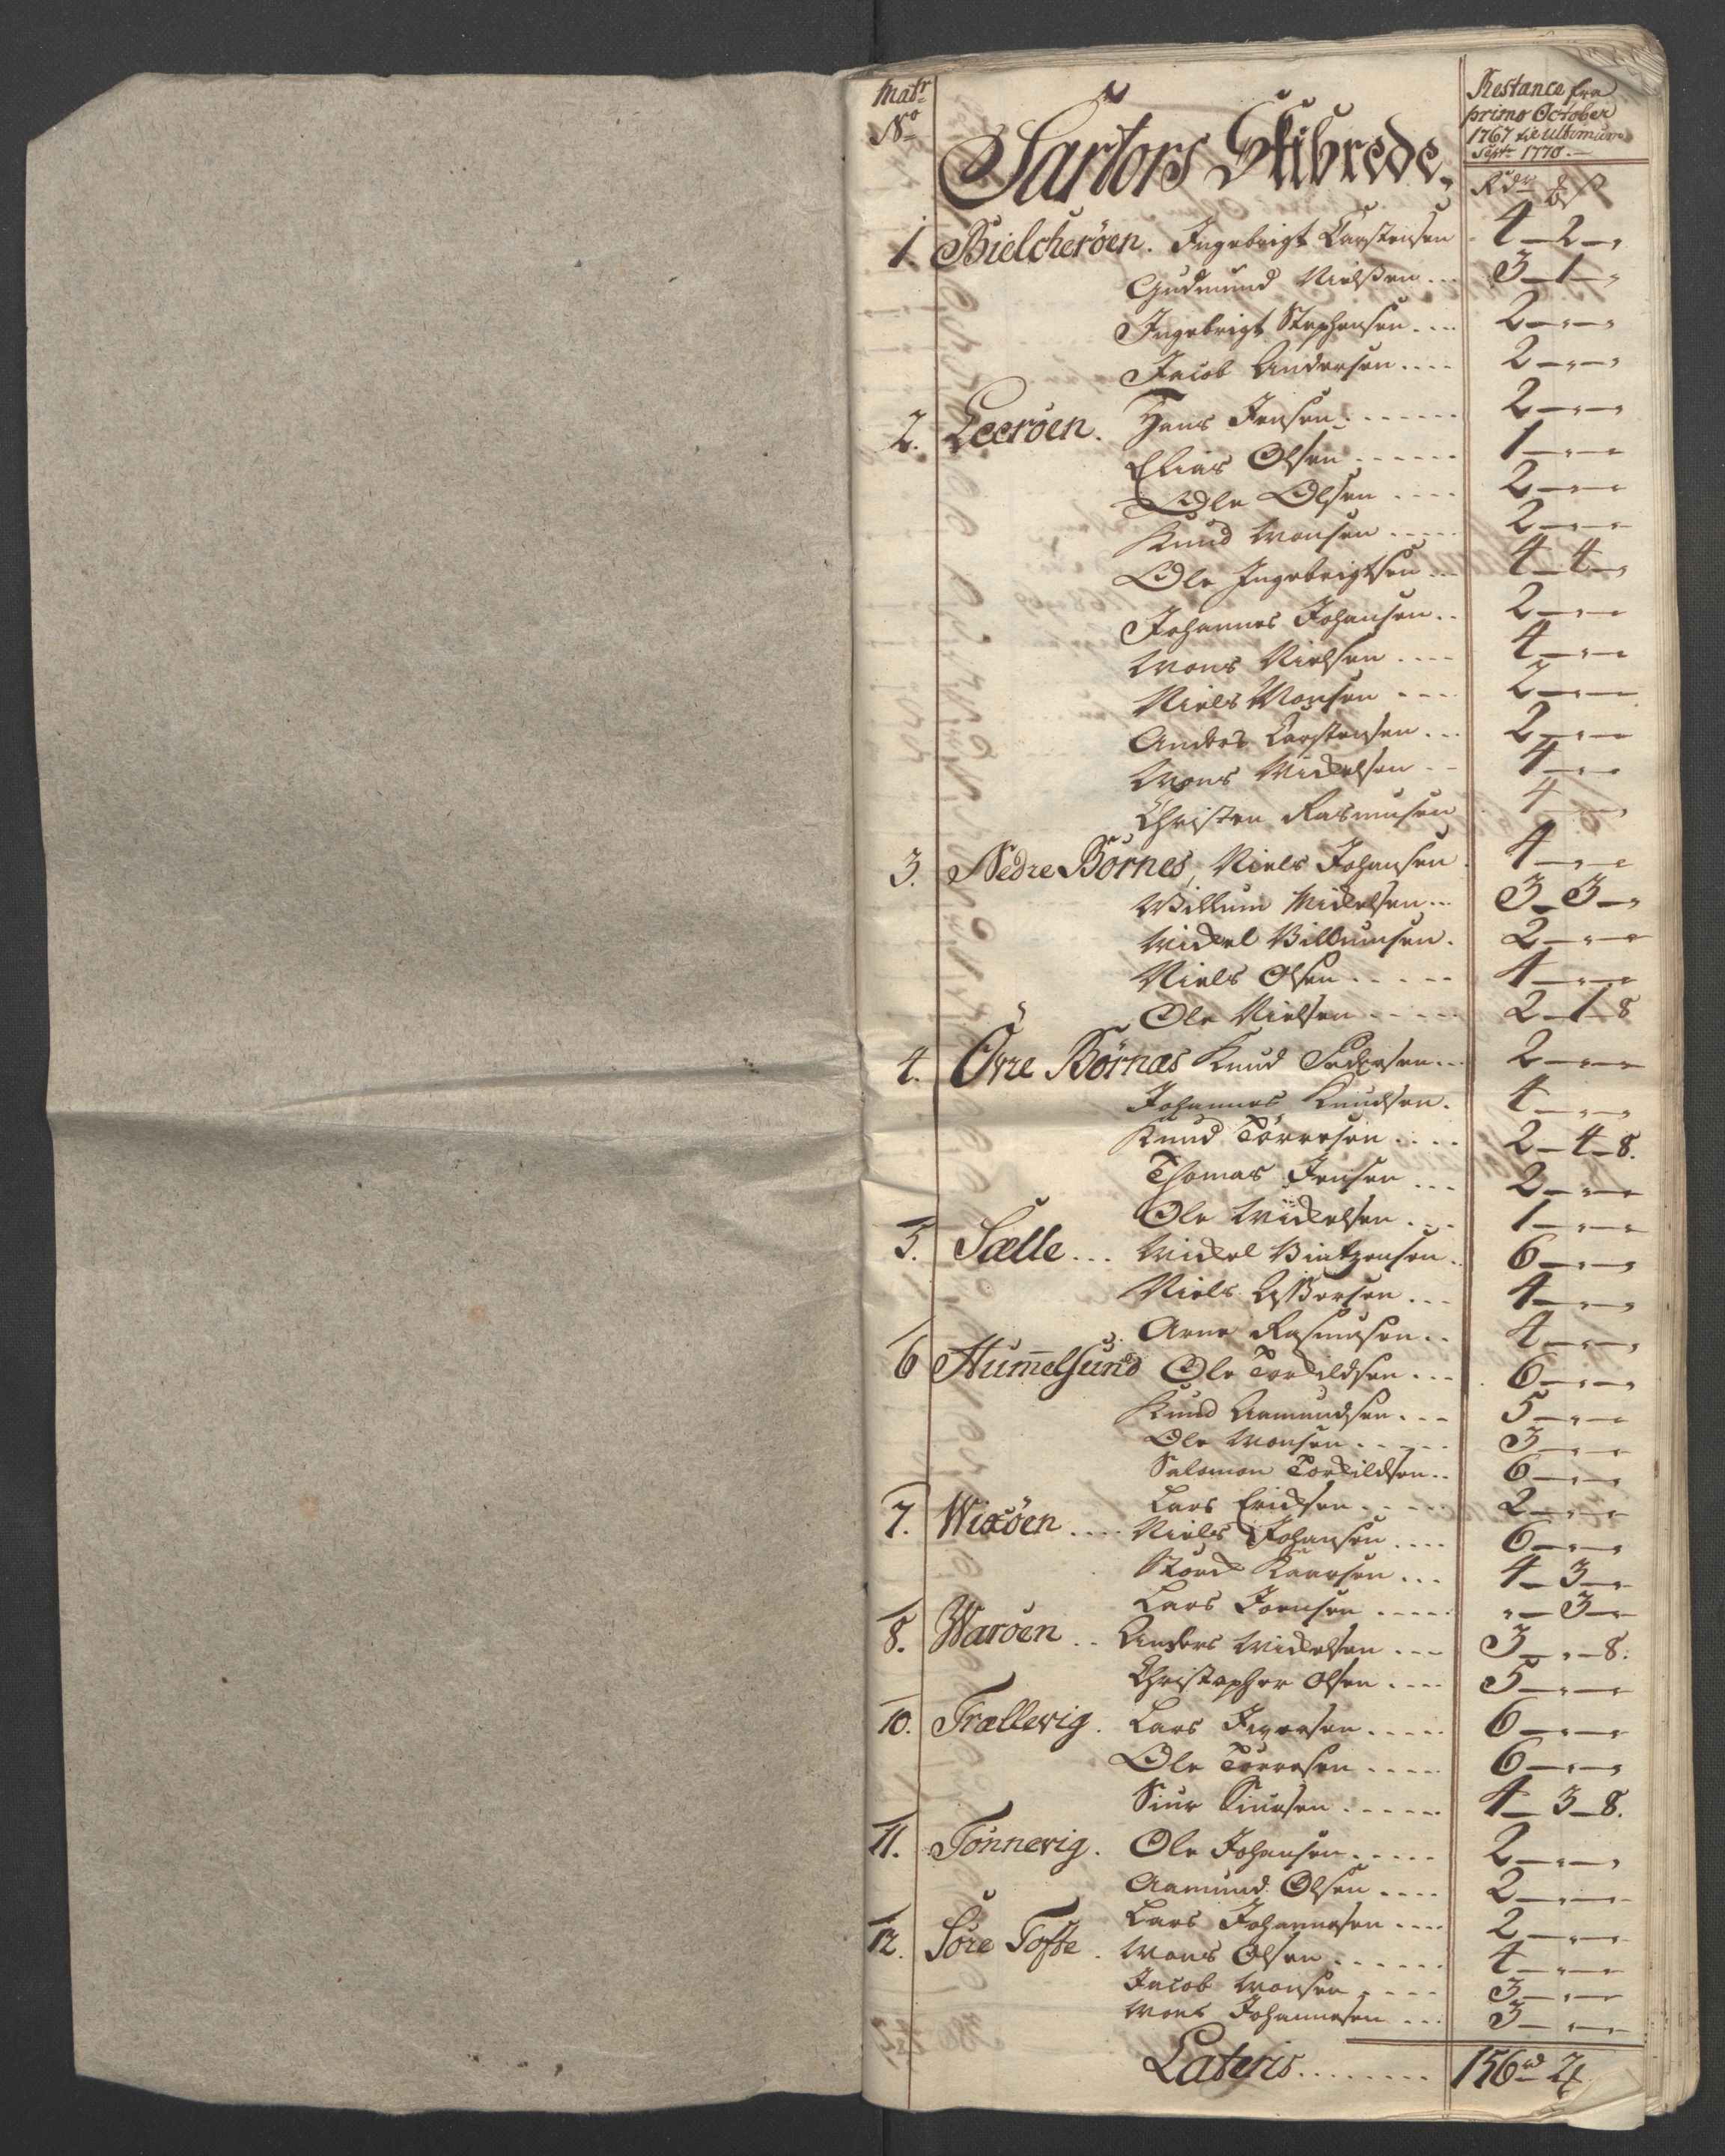 Matr No
Sartors Skibrede.
Restance fra
primo October
1767 til Ultimum
Septr 1770.
Rdr
1. Bielcheröen. Ingebrigt Carstensen 4 - 2 -
Gudmund Nielsen ... 3 - 1 -
Ingebrigt Stephensen .... 2 - -
Jacob Andersen .... 2 - -
2. Leeröen. Hans Jensen ...... 2 - -
Elias Olsen ...... 1 - -
Ole Olsen .... 2 - -
Knud Monsen ..... 2 - -
Ole Ingebrigtsen ... 4 - 4 -
Johannes Johansen .. 2 - -
Mons Nielsen .... 4 - -
Niels Monsen .... 2 - -
Anders Carstensen ... 2 - -
Mons Mickelsen .. 4 - -
Christen Rasmusen 4 - -
3. Nedre Börnes, Niels Johansen 4 - -
Willum Mickelsen ... 3 - 3 -
Mickel Villumsen. 2 - -
Niels Olsen ..... 4 - -
Ole Nielsen ..... 2 - 1 - 8
4. Övre Börnæs Knud Pedersen ... 2 - -
Johannes Knudsen. 4 - -
Knud Törresen .... 2 - 4 - 8.
Thomas Jensen ... 2 - -
Ole Mickelsen ... 1 - -
5. Sælle ... Mickel Vintzensen. 6 - -
Niels Assersen ... 4 - -
Arne Rasmusen .. 4 - -
6 Hum̄elsund Ole Torkildsen ... 6 - -
Knud Aamundsen ... 5 - -
Ole Monsen ..... 3 - -
Salomon Torkildsen .. 6 - -
Lars Ericksen ..... 2 - -
7. Wixöen .... Niels Johansen .... 6 - -
Lars ..... - 3 -
8. Waröen .. Anders Mickelsen ... 3 - - 8.
Christopher Olsen .... 5 - -
10. Trællevig. Lars Iversen ..... 6 - -
Ole Törresen ..... 6 - -
Siur Siursen ...... 4 - 3 - 8.
11. Tönnevig. Ole Johansen ..... 2 - -
Aamund Olsen .... 2 - -
Lars Johannesen .... 2 - -
12. Söre Tofte. Mons Olsen ...... 4 - -
Jacob Monsen ..... 3 - -
Mons Johannesen ... 3 - -
Lateris ........ 156 rd